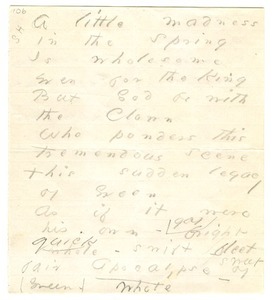 A little madness
in the Spring
Is wholesome
even for the King
But God be with
the Clown
Who ponders this
tremendous scene
this sudden legacy
of Green
As if it were
his own -
gay bright
quick whole - swift fleet
sweet
Fair Apocalypse of
Green -
whole